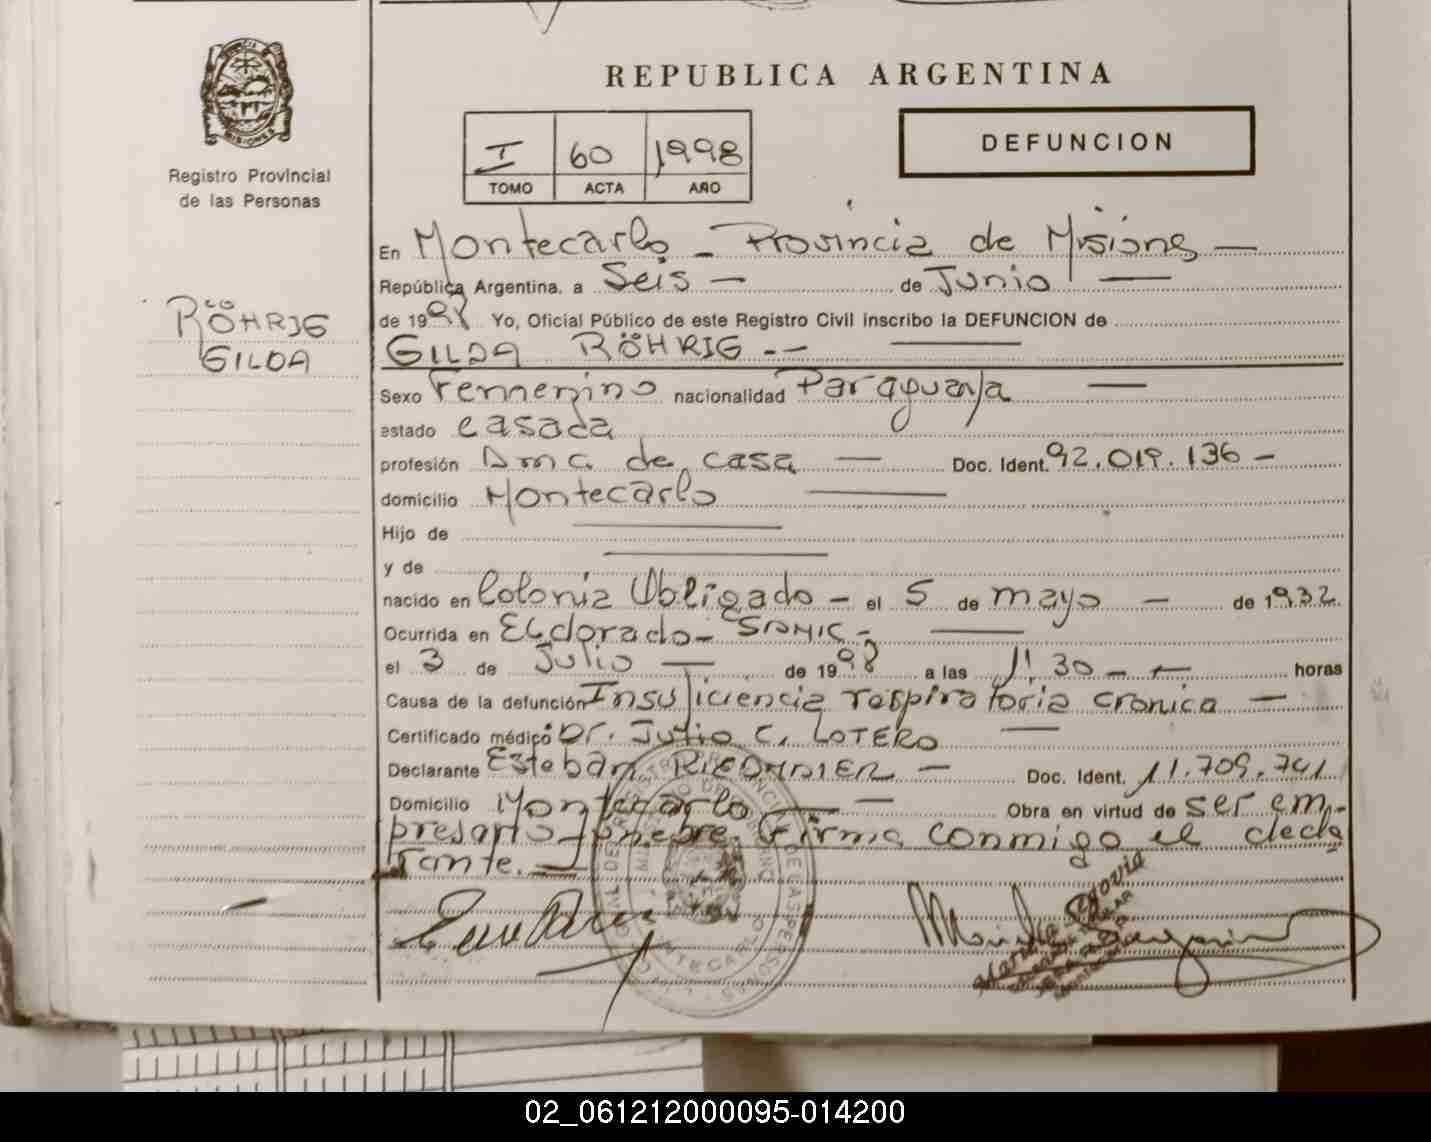 REPUBLICA ARGENTINA
I 60 1998
TOMO ACTA AÑO
DEFUNCION
MISIONES
Registro Provincial
de las Personas
RÖHRIG
GILDA
En Montecarlo - Provincia de Misiones —
República Argentina, a Seis — de Junio —
de 1998 Yo, Oficial Público de este Registro Civil inscribo la DEFUNCION de
GILDA RÖHRIG -- —
Sexo Femenino nacionalidad Paraguaya —
estado casada
profesión Ama de casa — Doc. Ident. 92.019.136 -
domicilio Montecarlo —
Hijo de —
y de —
nacido en Colonia Obligado - el 5 de mayo - de 1932
Ocurrida en Eldorado - SAMIC - —
el 3 de Julio — de 1998 a las 11.30 - - horas
Causa de la defunción Insuficiencia respiratoria cronica —
Certificado médico Dr. Julio C. LOTERO —
Declarante Esteban - Doc. Ident. 11.709.741
Domicilio Montecarlo — — Obra en virtud de ser em-
presario fúnebre. Firma conmigo el decla
rante. —
MONTECARLO
02_061212000095-014200